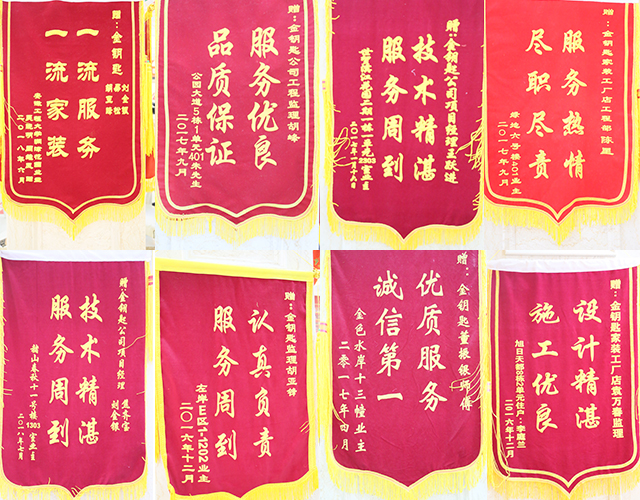 赠：金钥匙
刘金银
慕松
一流服务
一流家装
二〇一八年六月
赠：金钥匙公司工程监理胡峰
服务优良
品质保证
公园大道5栋1单元401朱先生
二〇一七年九月
赠：金钥匙公司项目经理
技术精湛
服务周到
二〇一七年
赠：金钥匙家装工厂店工程部陈星
服务热情
尽职尽责
绿地六号楼401业主
二〇一七年九月
赠：金钥匙公司项目经理
刘金银
技术精湛
服务周到
韶山春长十一号栋1303室业主
二〇一八年七月
赠：金钥匙监理胡亚锋
认真负责
服务周到
左岸E区1-1202业主
二〇一六年十二月
赠：金钥匙董振银师傅
优质服务
诚信第一
金色水岸十三幢业主
二零一七年四月
赠：金钥匙家装工厂店詹万春监理
设计精湛
施工优良
旭日天都8栋2单元住户：李庭兰
二〇一六年十二月